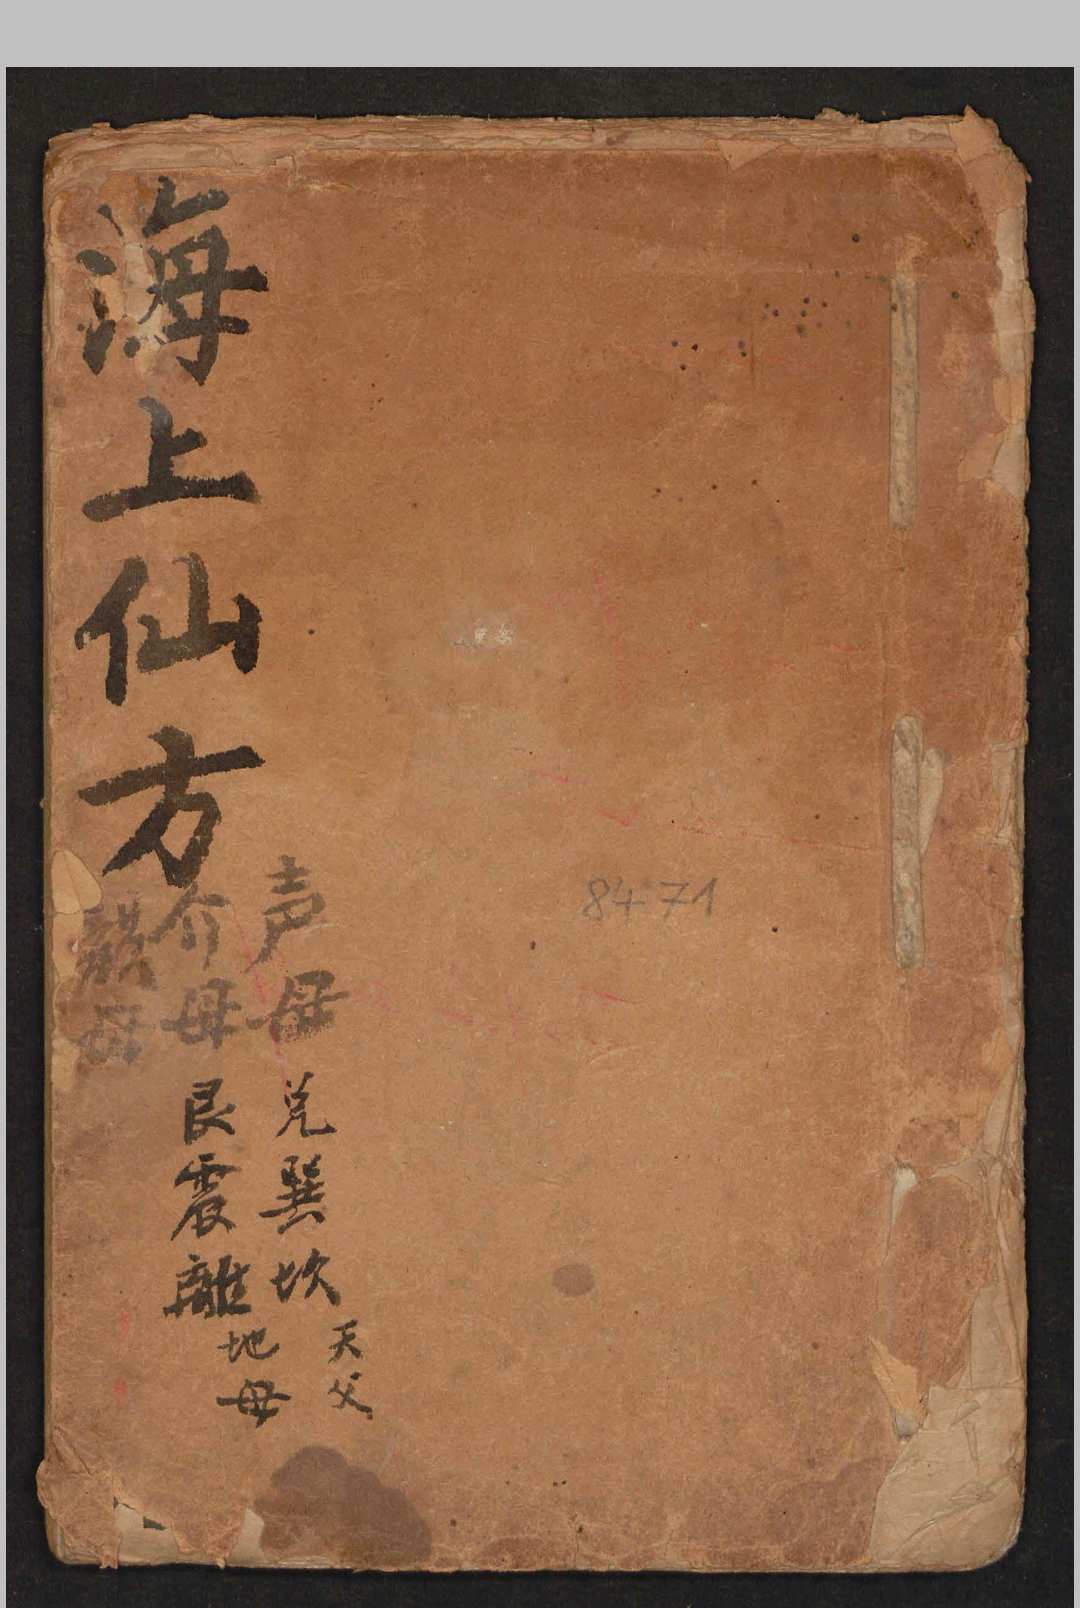 海上仙方
声母
介母
韻母
兑巽坎
艮震離
天父
地母
8471